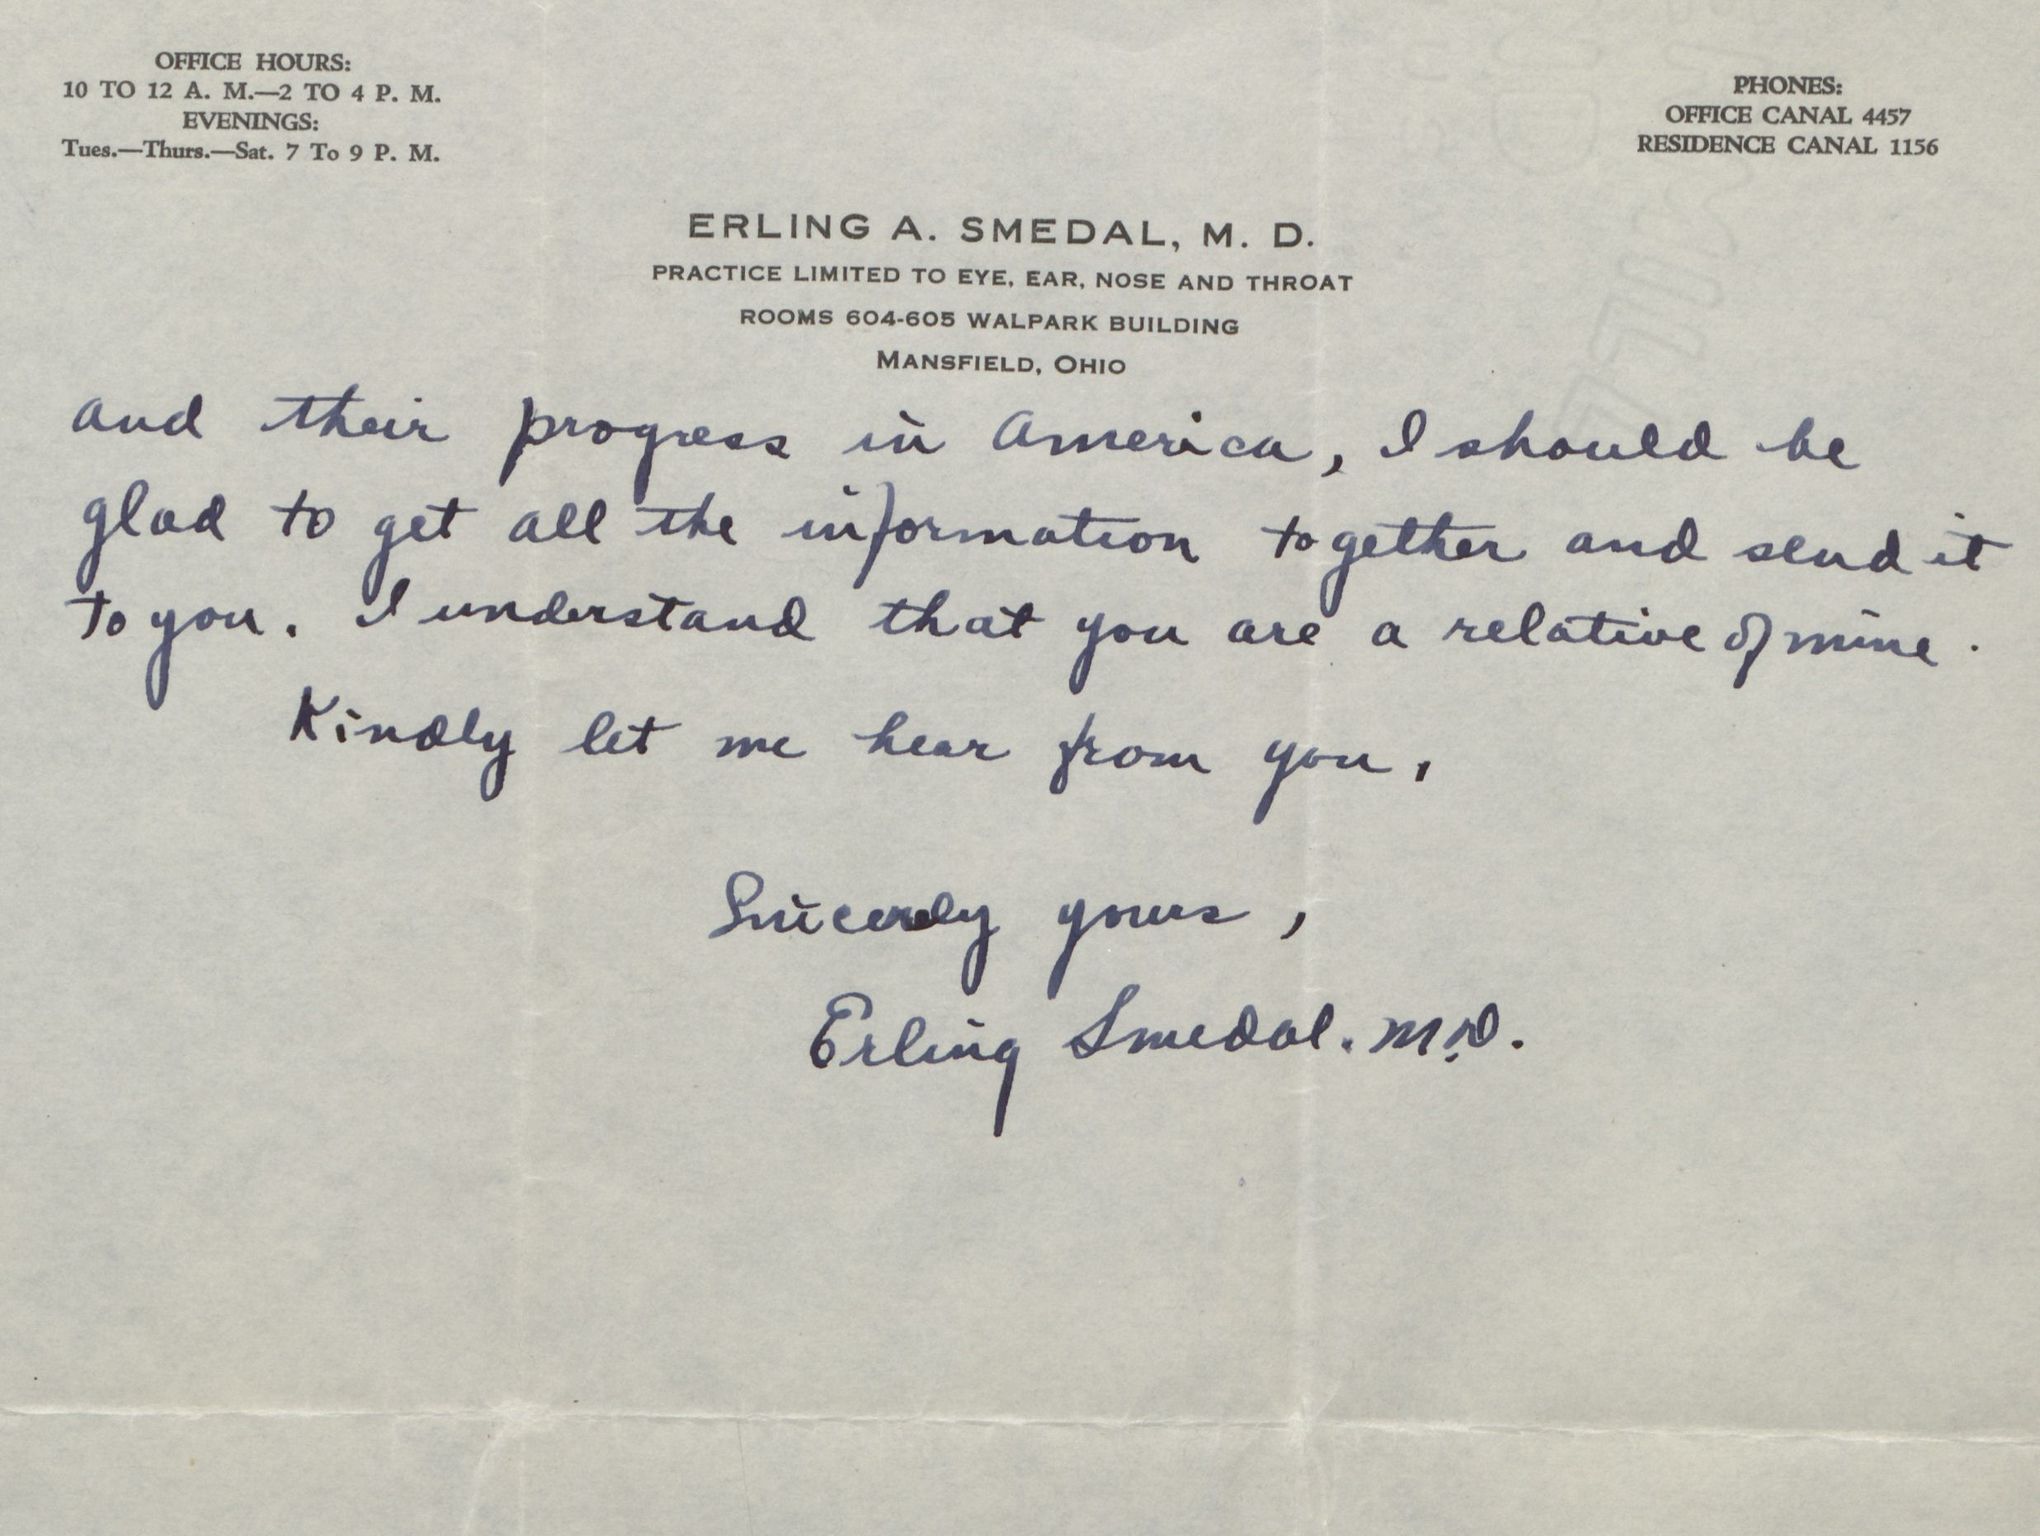 OFFICE HOURS:
10 TO 12 A. M.—2 TO 4 P. M.
EVENINGS:
Tues.—Thurs.—Sat. 7 To 9 P. M.
PHONES:
OFFICE CANAL 4457
RESIDENCE CANAL 1156
ERLING A. SMEDAL, M. D.
PRACTICE LIMITED TO EYE, EAR, NOSE AND THROAT
ROOMS 604-605 WALPARK BUILDING
MANSFIELD, OHIO
and their progress in America, I should be
glad to get all the information together and send it
to you. I understand that you are a relative of mine.
Kindly let me hear from you,
Sincerely yours,
Erling Smedal. M.D.